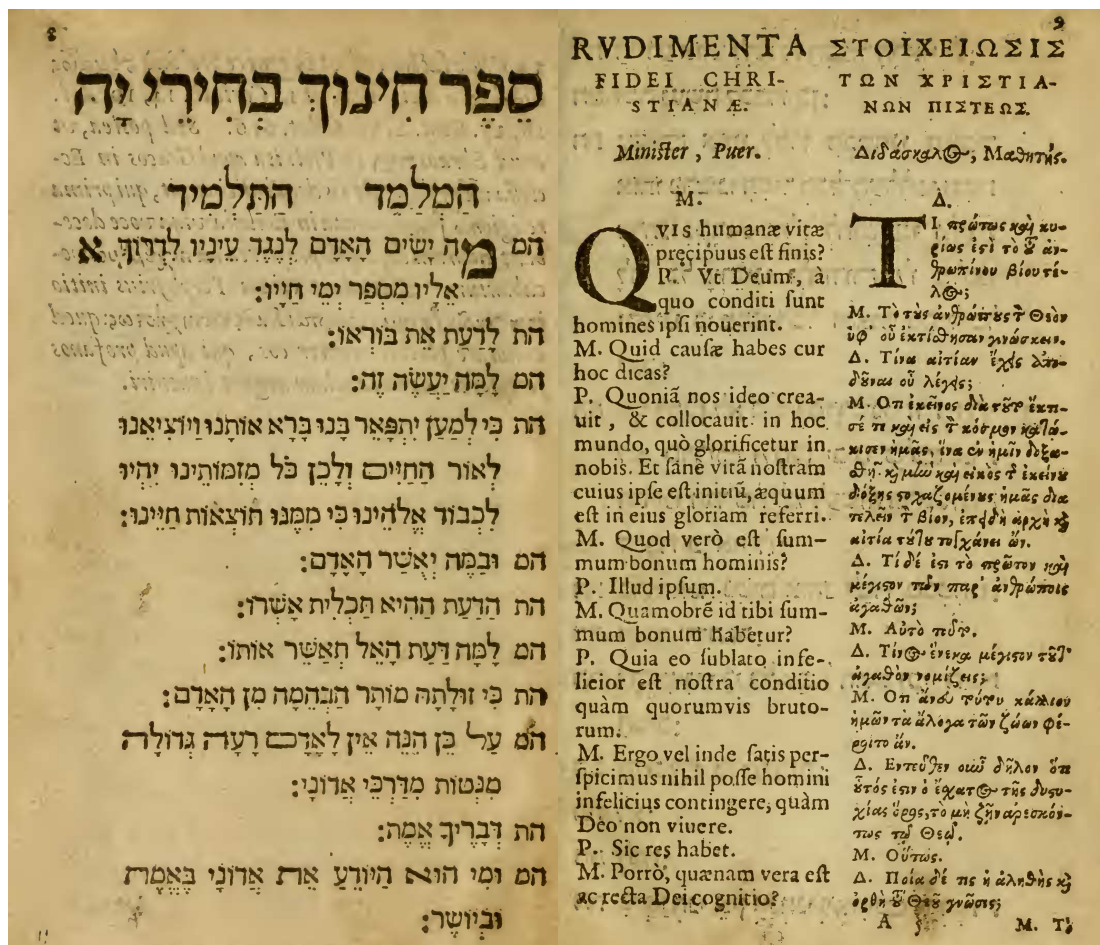 8
סֵפֶר חִינוּךְ בְּחִירֵי יָהּ
הַמְלַמֵד הַתַּלְמִיד
א הם מָה יָשִׂים הָאָדָם לְנֶגֶד עֵינָיו לִדְרוֹךְ
אֵלָיו מִסְפַּר יְמֵי חַיָּיו:
הת לָדַעַת אֶת בּוֹרְאוֹ:
הם לָמָּה יַעֲשֶׂה זֶה:
הת כִּי לְמַעַן יִתְפָּאֵר בָּנוּ בָּרָא אוֹתָנוּ וַיּוֹצִיאֵנוּ
לְאוֹר הַחַיִּים וְלָכֵן כֹּל מְזִמּוֹתֵינוּ יִהְיוּ
לִכְבוֹד אֱלֹהֵינוּ כִּי מִמֶּנּוּ תּוֹצְאוֹת חַיֵּינוּ:
הם וּבַמֶּה יְאֻשַּׁר הָאָדָם:
הת הַדַּעַת הַהִיא תַּכְלִית אָשְׁרוֹ:
הם לָמָּה דַעַת הָאֵל תְּאַשֵּׁר אוֹתוֹ:
הת כִּי זוּלָתָהּ מוֹתַר הַבְּהֵמָה מִן הָאָדָם:
הם עַל כֵּן הִנֵּה אֵין לָאָדָם רָעָה גְּדוֹלָה
מִנְּטוֹת מִדַּרְכֵי אֲדוֹנָי:
הת דְּבָרֶיךָ אֱמֶת:
הם וּמִי הוּא הַיּוֹדֵעַ אֵת אֲדוֹנָי בֶּאֱמֶת
וּבְיוֹשֶׁר:
9
RVDIMENTA
FIDEI CHRI-
STIANÆ.
Minister, Puer.
M.
QVIS humanæ vitæ
præcipuus est finis?
P. Vt Deum, à
quo conditi sunt
homines ipsi nouerint.
M. Quid causæ habes cur
hoc dicas?
P. Quoniã nos ideo crea-
uit, & collocauit in hoc
mundo, quò glorificetur in
nobis. Et sanè vitã nostram
cuius ipse est initiũ, æquum
est in eius gloriam referri.
M. Quod verò est sum-
mum bonum hominis?
P. Illud ipsum.
M. Quamobrẽ id tibi sum-
mum bonum habetur?
P. Quia eo sublato infe-
licior est nostra conditio
quàm quorumvis bruto-
rum.
M. Ergo vel inde satis per-
spicimus nihil posse homini
infelicius contingere, quàm
Deo non viuere.
P. Sic res habet.
M. Porrò, quænam vera est
ac recta Dei cognitio?
A
ΣΤΟΙΧΕΙΩΣΙΣ
ΤΩΝ ΧΡΙΣΤΙΑ-
ΝΩΝ ΠΙΣΤΕΩΣ.
Διδάσκαλος, Μαθητής.
Δ.
ΤΙ πρώτως καὶ κυ-
ρίως ἐστὶ τὸ τοῦ ἀν-
θρωπίνου βίου τέ-
λος;
Μ. Τὸ τοὺς ἀνθρώπους τὸν Θεὸν
ὑφ' οὗ ἐκτίσθησαν γινώσκειν.
Δ. Τίνα αἰτίαν ἔχεις ἀπο-
δοῦναι οὗ λέγεις;
Μ. Οτι ἐκεῖνος διὰ τοῦτο ἔκτι-
σέ τε καὶ εἰς τὸν κόσμον κατῴ-
κισεν ἡμᾶς, ἵνα ἐν ἡμῖν δοξα-
σθῇ. καὶ μὴν καὶ εἰκὸς τῆς ἐκείνου
δόξης στοχαζομένους ἡμᾶς δια
τελεῖν τὸν βίον, ἐπειδὴ ἀρχὴ καὶ
αἰτία τούτου τυγχάνει ὤν.
Δ. Τί δέ ἐστι τὸ πρῶτον καὶ
μέγιστον τῶν παρ' ἀνθρώποις
ἀγαθῶν;
Μ. Αὐτὸ τοῦτο.
Δ. Τίνος ἕνεκα μέγιστον τοῦτ'
ἀγαθὸν νομίζεις;
Μ. Οτι ἄνευ τούτου κάλλιον
ἡμῶν τὰ ἄλογα τῶν ζώων φέ-
ροιτο ἄν.
Δ. Εντεῦθεν οὖν δῆλον ὅτι
οὗτός ἐστιν ὁ ἔσχατος τῆς δυστυ-
χίας ὅρος, τὸ μὴ ζῆν ἀρεσκόν-
τως τῷ Θεῷ.
Μ. Οὕτως.
Δ. Ποία δέ τις ἡ ἀληθὴς καὶ
ὀρθὴ τοῦ Θεοῦ γνῶσις;
Μ. Τὸ